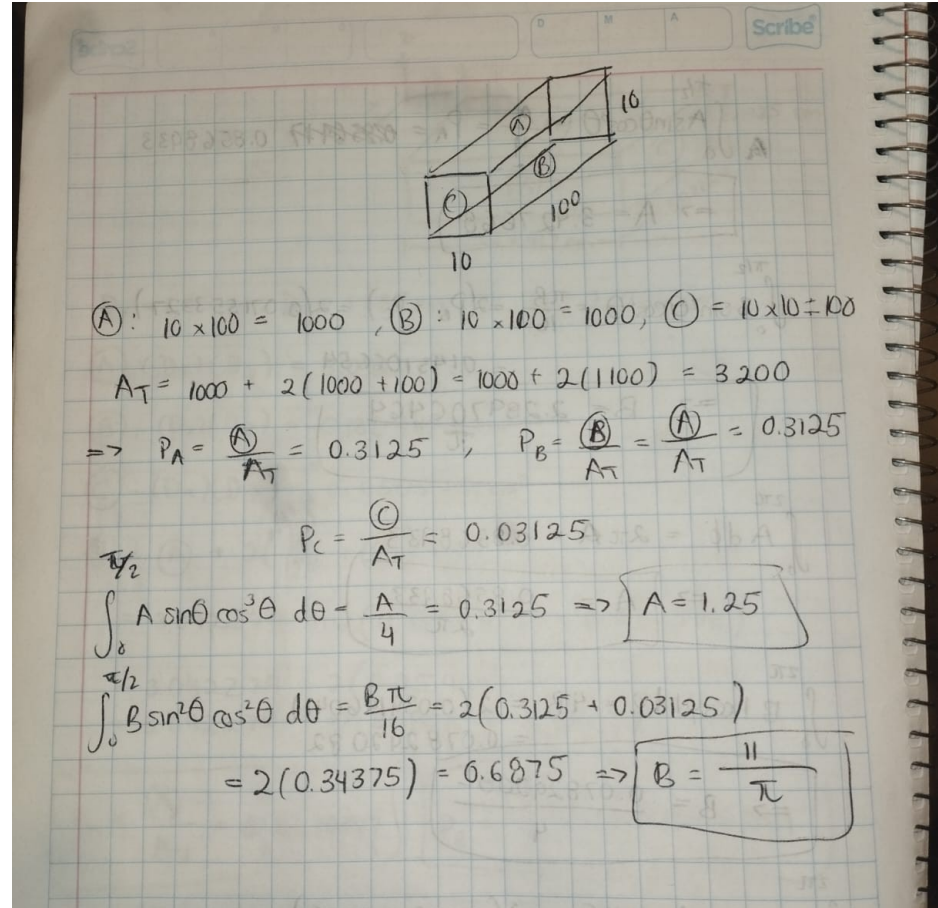 D M A Scribe
A 10
B
C 100
10
Ⓐ: 10 x 100 = 1000 , Ⓑ: 10 x 100 = 1000, Ⓒ = 10 x 10 = 100
A_T = 1000 + 2(1000 + 100) = 1000 + 2(1100) = 3200
=> P_A = Ⓐ/A_T = 0.3125 , P_B = Ⓑ/A_T = Ⓐ/A_T = 0.3125
P_C = Ⓒ/A_T = 0.03125
∫_0^{π/2} A sinθ cos³θ dθ = A/4 = 0.3125 => A = 1.25
∫_0^{π/2} B sin²θ cos²θ dθ = Bπ/16 = 2(0.3125 + 0.03125)
= 2(0.34375) = 0.6875 => B = 11/π